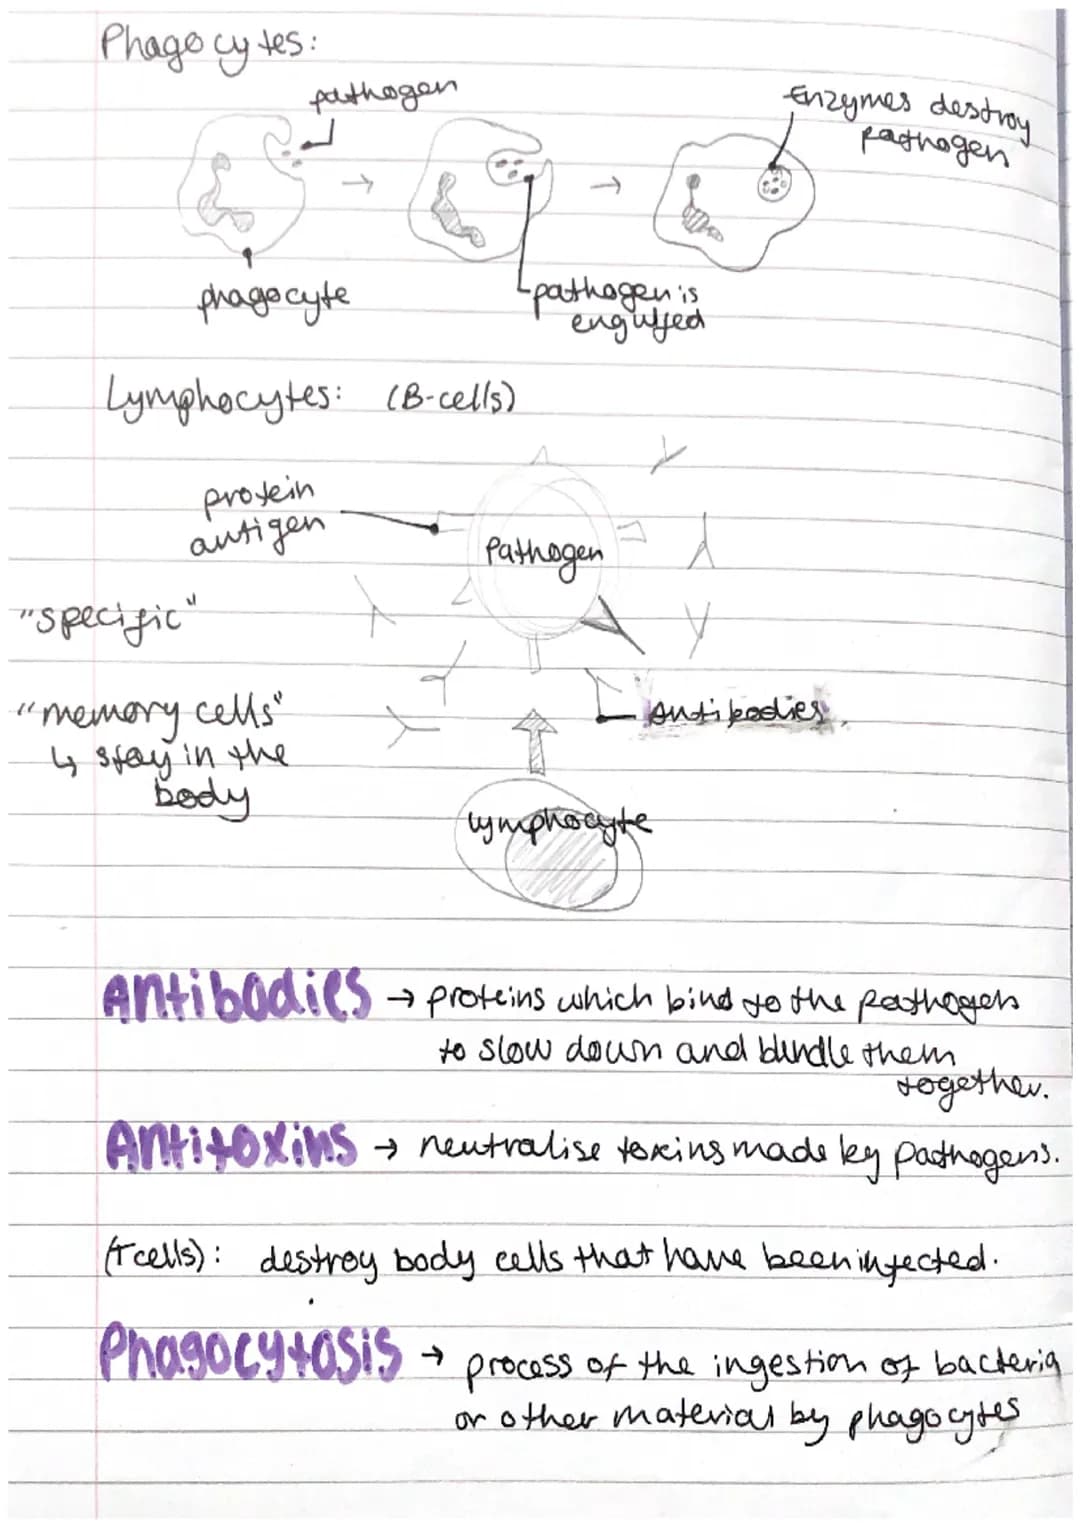 Phagocytes:
pathogen
Enzymes destroy
pathogen
phagocyte
pathogen is
engulfed
Lymphocytes: (B-cells)
protein
antigen
Pathogen
"specific"
"memory cells"
↳ stay in the
body
Antibodies
lymphocyte
Antibodies → proteins which bind to the pathogens
to slow down and bundle them
together.
Antitoxins → neutralise toxins made by pathogens.
(T cells): destroy body cells that have been infected.
Phagocytosis → process of the ingestion of bacteria
or other material by phagocytes